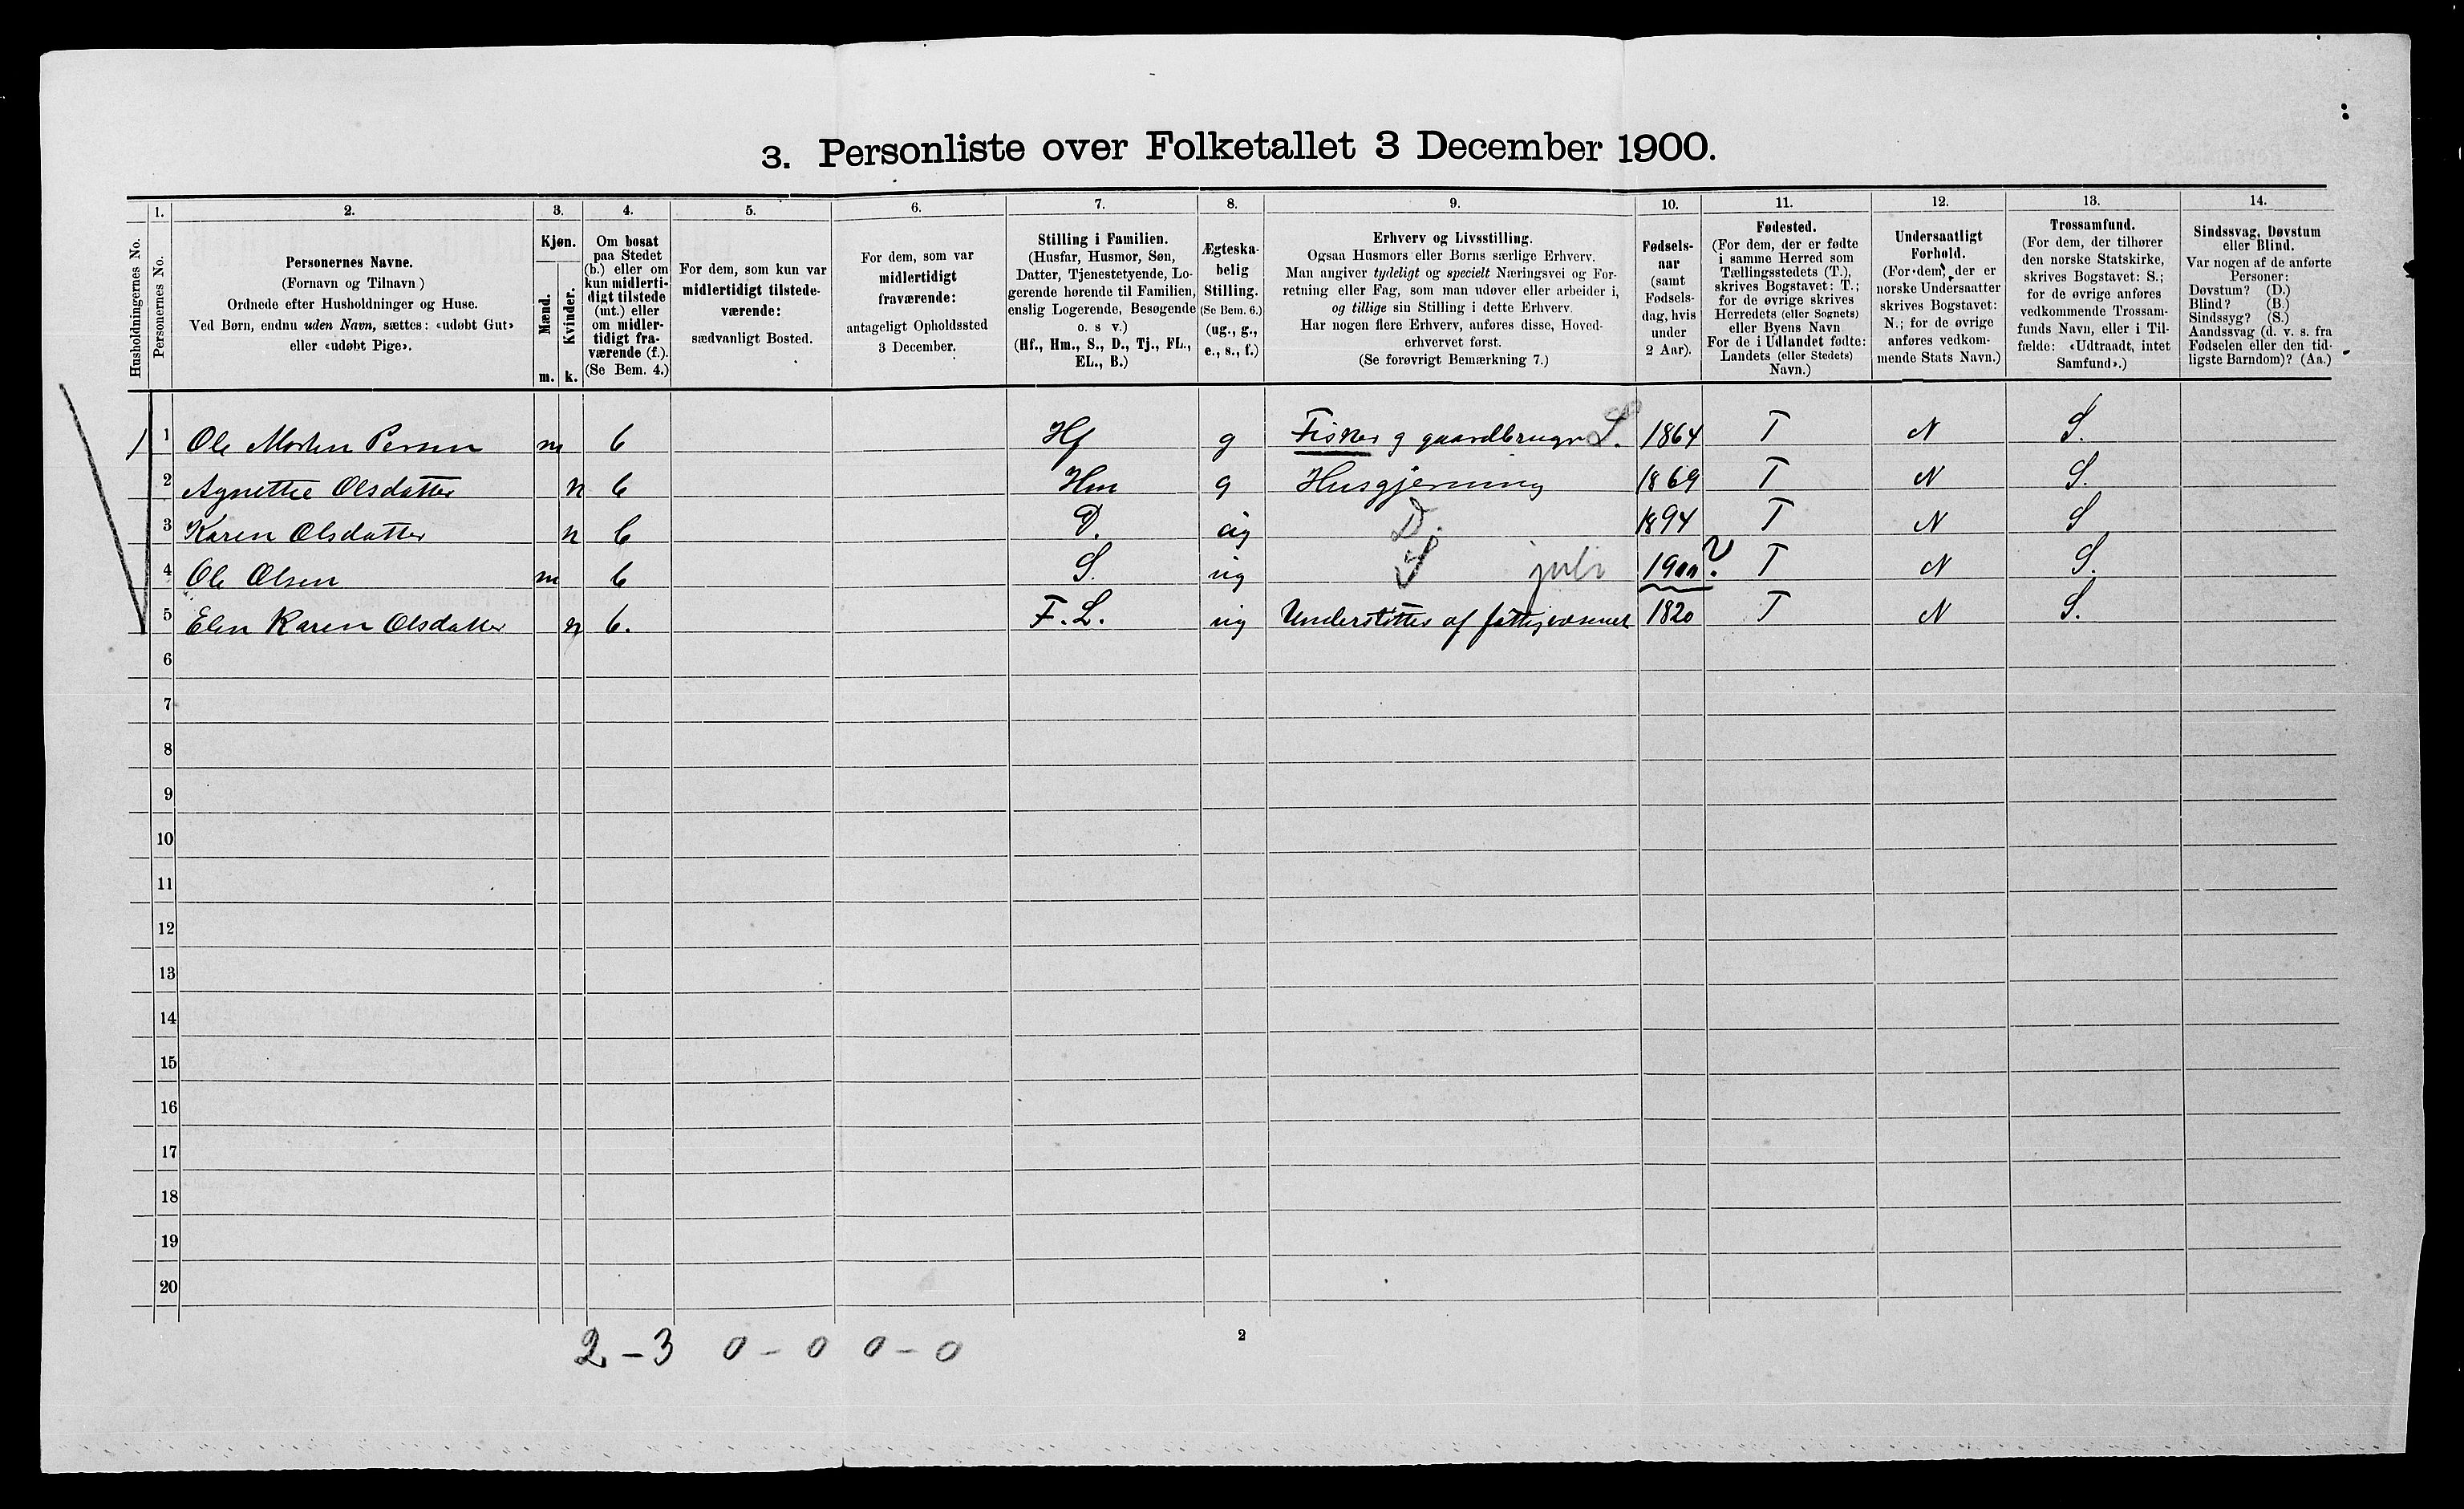 3. Personliste over Folketallet 3 December 1900.
1. 2. 3. 4. 5. 6. 7. 8. 9. 10. 11. 12. 13. 14.
Husholdningernes No.
Personernes No.
Personernes Navne.
(Fornavn og Tilnavn)
Ordnede efter Husholdninger og Huse.
Ved Børn, endnu uden Navn, sættes: «udøbt Gut»
eller «udøbt Pige».
Kjøn.
Mænd.
Kvinder.
m. k.
Om bosat
paa Stedet
(b.) eller om
kun midlerti-
digt tilstede
(mt.) eller
om midler-
tidigt fra-
værende (f.).
(Se Bem. 4.)
For dem, som kun var
midlertidigt tilstede-
værende:
sædvanligt Bosted.
For dem, som var
midlertidigt
fraværende:
antageligt Opholdssted
3 December.
Stilling i Familien.
(Husfar, Husmor, Søn,
Datter, Tjenestetyende, Lo-
gerende hørende til Familien,
enslig Logerende, Besøgende
o. s v.)
(Hf., Hm., S., D., Tj., FL.,
EL., B.)
Ægteska-
belig
Stilling.
(Se Bem. 6.)
(ug., g.,
e., s., f.)
Erhverv og Livsstilling.
Ogsaa Husmors eller Børns særlige Erhverv.
Man angiver tydeligt og specielt Næringsvei og For-
retning eller Fag, som man udøver eller arbeider i,
og tillige sin Stilling i dette Erhverv.
Har nogen flere Erhverv, anføres disse, Hoved-
erhvervet først.
(Se forøvrigt Bemærkning 7.)
Fødsels-
aar
(samt
Fødsels-
dag, hvis
under
2 Aar).
Fødested.
(For dem, der er fødte
i samme Herred som
Tællingsstedets (T.),
skrives Bogstavet: T.;
for de øvrige skrives
Herredets (eller Sognets)
eller Byens Navn
For de i Udlandet fødte:
Landets (eller Stedets)
Navn.)
Undersaatligt
Forhold.
(For dem, der er
norske Undersaatter
skrives Bogstavet:
N.; for de øvrige
anføres vedkom-
mende Stats Navn.)
Trossamfund.
(For dem, der tilhører
den norske Statskirke,
skrives Bogstavet: S.;
for de øvrige anføres
vedkommende Trossam-
funds Navn, eller i Til-
fælde: «Udtraadt, intet
Samfund».)
Sindssvag, Døvstum
eller Blind.
Var nogen af de anførte
Personer:
Døvstum? (D.)
Blind? (B.)
Sindssyg? (S.)
Aandssvag (d. v. s. fra
Fødselen eller den tid-
ligste Barndom)? (Aa.)
1 1 Ole Morten Persen m b Hf g Fisker g gaardbruger S. 1864 T N S.
2 Agnethe Olsdatter k b Hm g Husgjerning 1869 T N S.
3 Karen Olsdatter k b D. ug D. 1894 T N S
4 Ole Olsen m b S. ug S juli 1900 ? T N S.
5 Elen Karen Olsdatter k b. F.L. ug Understøttes af fattigvæsenet 1820 T N S.
6
7
8
9
10
11
12
13
14
15
16
17
18
19
20
2 - 3 0 - 0 0 - 0
2